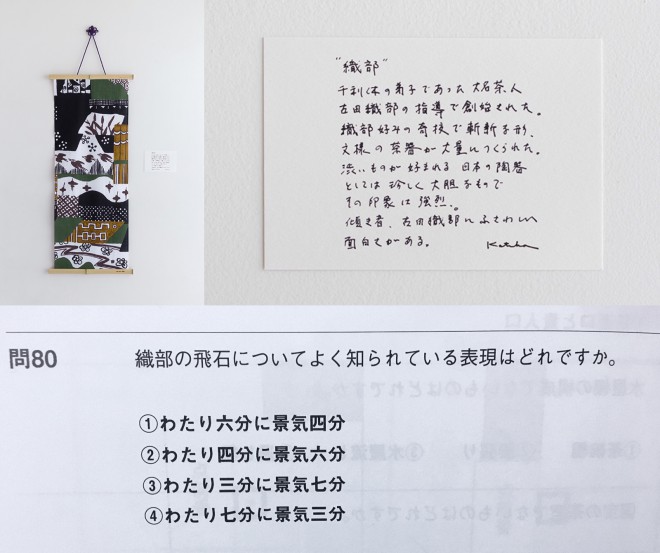 "織部"
千利休の弟子であった大名茶人
古田織部の指導で創始された。
織部好みの奇抜で斬新な形、
文様の茶器が大量につくられた。
渋いものが好まれる日本の陶器
としては珍しく大胆なもので
その印象は強烈。
傾き者、古田織部にふさわしい
面白さがある。
問80 織部の飛石についてよく知られている表現はどれですか。
①わたり六分に景気四分
②わたり四分に景気六分
③わたり三分に景気七分
④わたり七分に景気三分